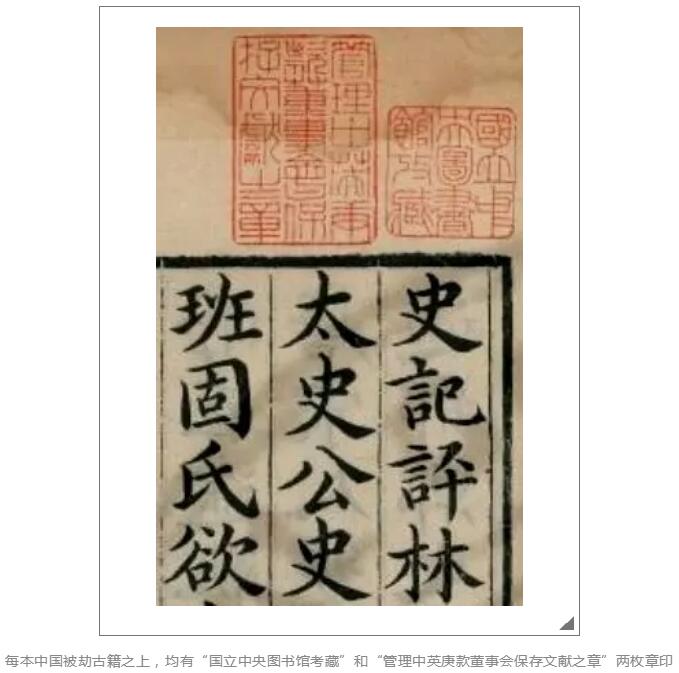 國立中
央圖書
館攷藏
管理中英庚
款董事會保
存文獻之章
史記評林
太史公史
班固氏欲
每本中国被劫古籍之上，均有“国立中央图书馆考藏”和“管理中英庚款董事会保存文献之章”两枚章印